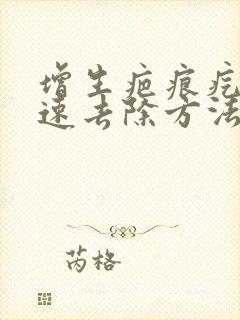 增生疤痕疙
速去除方法
芮格